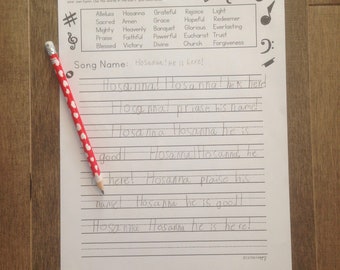 Alleluia Hosanna Grateful Rejoice Light
Sacred Amen Grace Hopeful Redeemer
Mighty Heavenly Banquet Glorious Everlasting
Praise Faithful Powerful Eucharist Trust
Blessed Victory Divine Church Forgiveness
Song Name: Hosanna! He is here!
Hosanna! Hosanna! he is here
Hosanna! praise his name!
Hosanna! Hosanna he is
good! Hosanna! Hosanna! he is
here! Hosanna praise his
name! Hosanna he is good!
Hosanna Hosanna he is here!